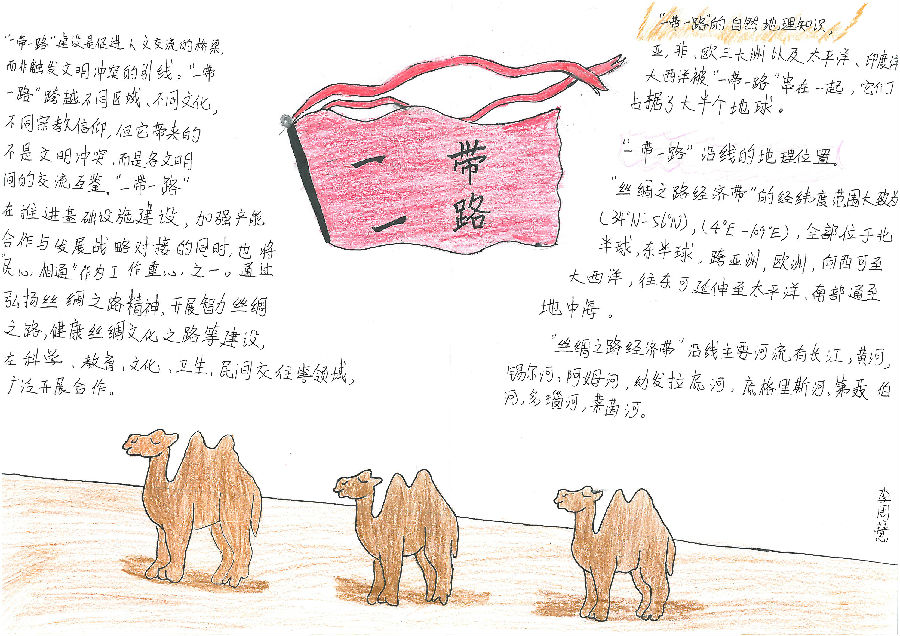 "一带一路"建设是促进人文交流的桥梁,
而非触发文明冲突的引线。"一带
一路"跨越不同区域、不同文化,
不同宗教信仰,但它带来的
不是文明冲突,而是各文明
间的交流互鉴。"一带一路"
在推进基础设施建设,加强产能
合作与发展战略对接的同时,也将
民心相通"作为工作重心之一。通过
弘扬丝绸之路精神,开展智力丝绸
之路,健康丝绸文化之路等建设,
在科学、教育、文化、卫生、民间交往等领域,
广泛开展合作。
一 带
一 路
"一带一路"的自然地理知识,
亚,非、欧三大洲以及太平洋、印度洋
大西洋被"一带一路"串在一起,它们
占据了大半个地球。
"一带一路"沿线的地理位置
"丝绸之路经济带"的经纬度范围大致为
(34°N-56°N),(4°E-109°E),全部位于北
半球,东半球,跨亚洲,欧洲,向西可至
大西洋,往东可延伸至太平洋、南部通至
地中海。
"丝绸之路经济带"沿线主要河流有长江,黄河,
锡尔河,阿姆河,幼发拉底河、底格里斯河、第聂伯
河,多瑙河,莱茵河。
李周